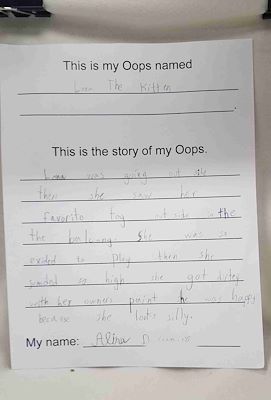 This is my Oops named
The Kitten
This is the story of my Oops.
was going out side
then she saw her
favorito toy out side in the
the balcony. She was so
exided to play then she
so high she got dirtey
with her owners paint he was happy
because she looks silly.
My name: Alina D